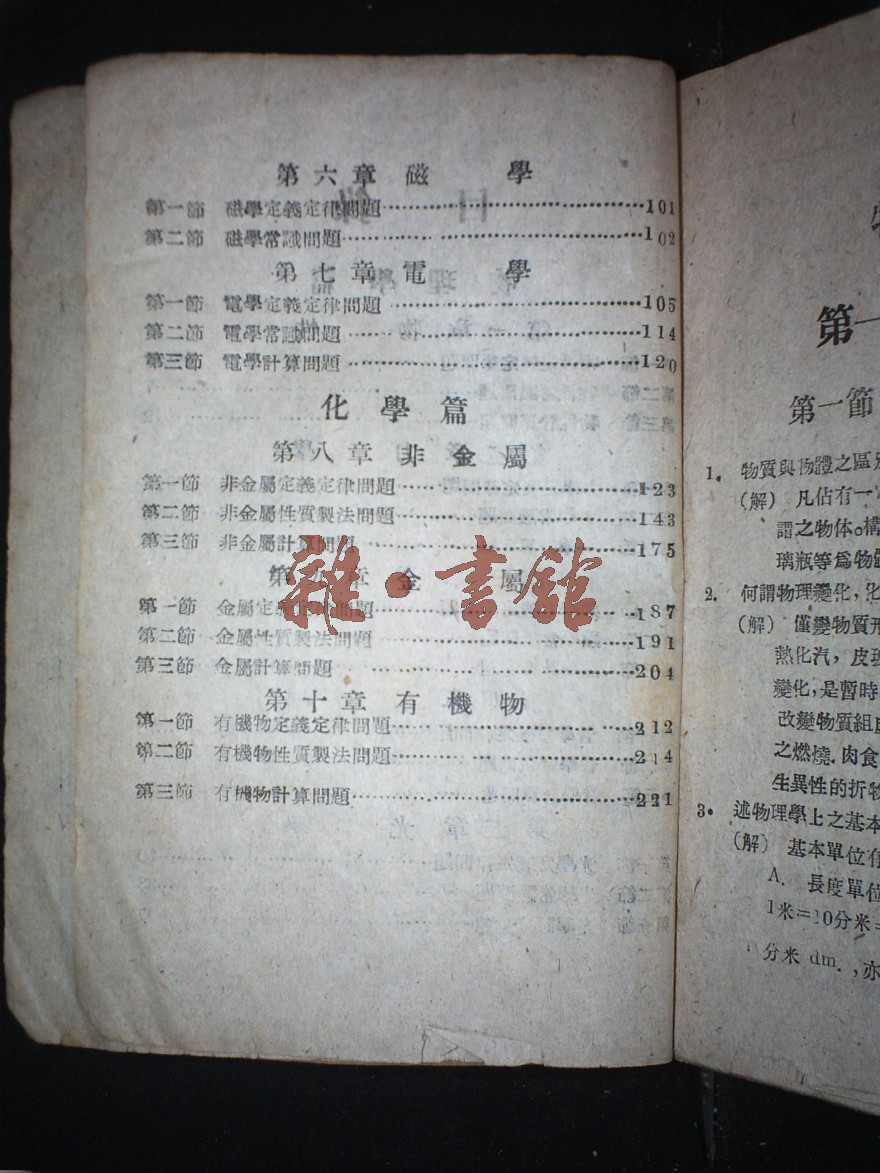 第六章 磁學
第一節 磁學定義定律問題……101
第二節 磁學常識問題……102
第七章 電學
第一節 電學定義定律問題……105
第二節 電學常識問題……114
第三節 電學計算問題……120
化學篇
第八章 非金屬
第一節 非金屬定義定律問題……123
第二節 非金屬性質製法問題……143
第三節 非金屬計算問題……175
第九章 金屬
雜·書館
第一節 金屬定義定律問題……187
第二節 金屬性質製法問題……191
第三節 金屬計算問題……204
第十章 有機物
第一節 有機物定義定律問題……212
第二節 有機物性質製法問題……214
第三節 有機物計算問題……221
第一
第一節
1. 物質與物體之區
(解) 凡佔有一
謂之物体。構
璃瓶等爲物
2. 何謂物理變化，化
(解) 僅變物質形
熱化汽，皮
變化，是暫時
改變物質組
之燃燒．肉食
生異性的折物
3. 述物理學上之基本
(解) 基本單位有
A. 長度單位
1米=10分米=
分米 dm.，亦